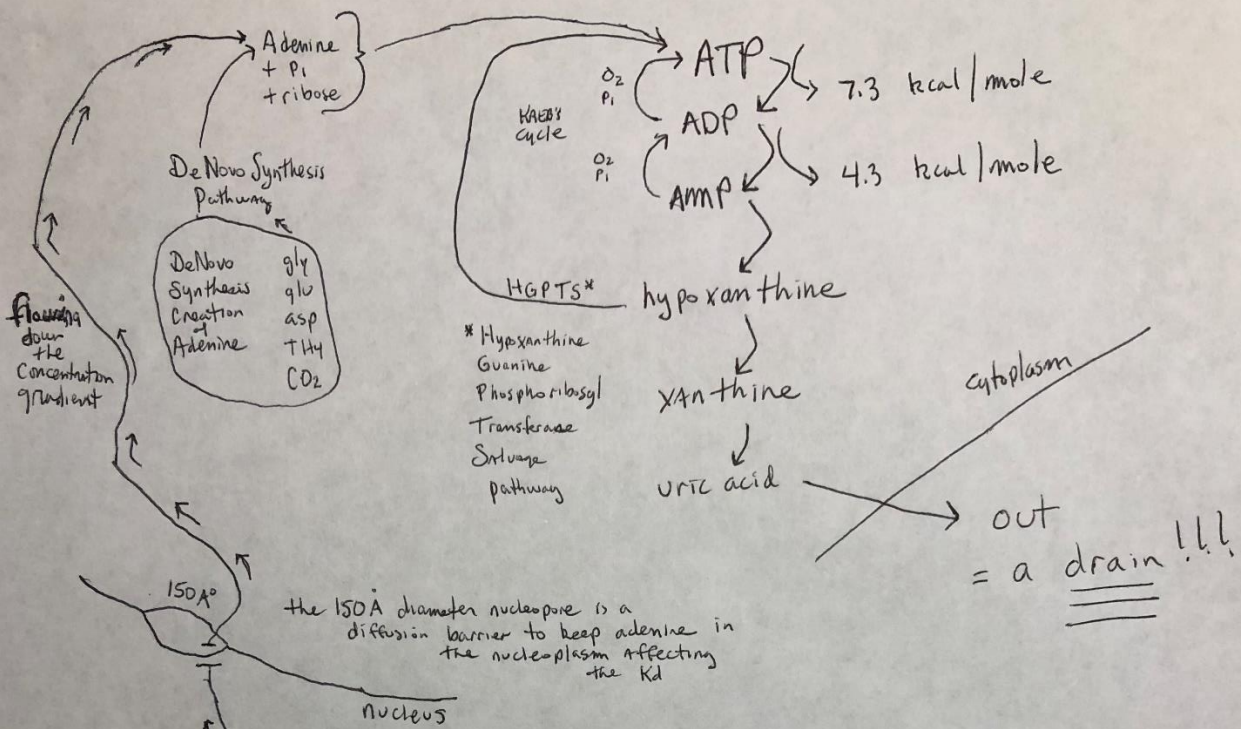 Adenine
+ Pi
+ ribose
ATP
O2
Pi
7.3 kcal/mole
KREB'S
cycle
ADP
O2
Pi
4.3 kcal/mole
AMP
DeNovo Synthesis
Pathway
DeNovo gly
Synthesis glu
Creation asp
of
Adenine THy
CO2
HGPTS*
hypoxanthine
flowing
down
the
concentration
gradient
* Hypoxanthine
Guanine
Phosphoribosyl
Transferase
Salvage
pathway
xanthine
cytoplasm
uric acid
out
= a drain!!!
150 A°
the 150 Å diameter nucleopore is a
diffusion barrier to keep adenine in
the nucleoplasm affecting
the Kd
nucleus